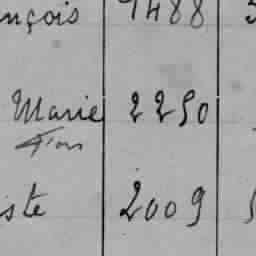 nçois 1488
Marie 2250
iste 2009